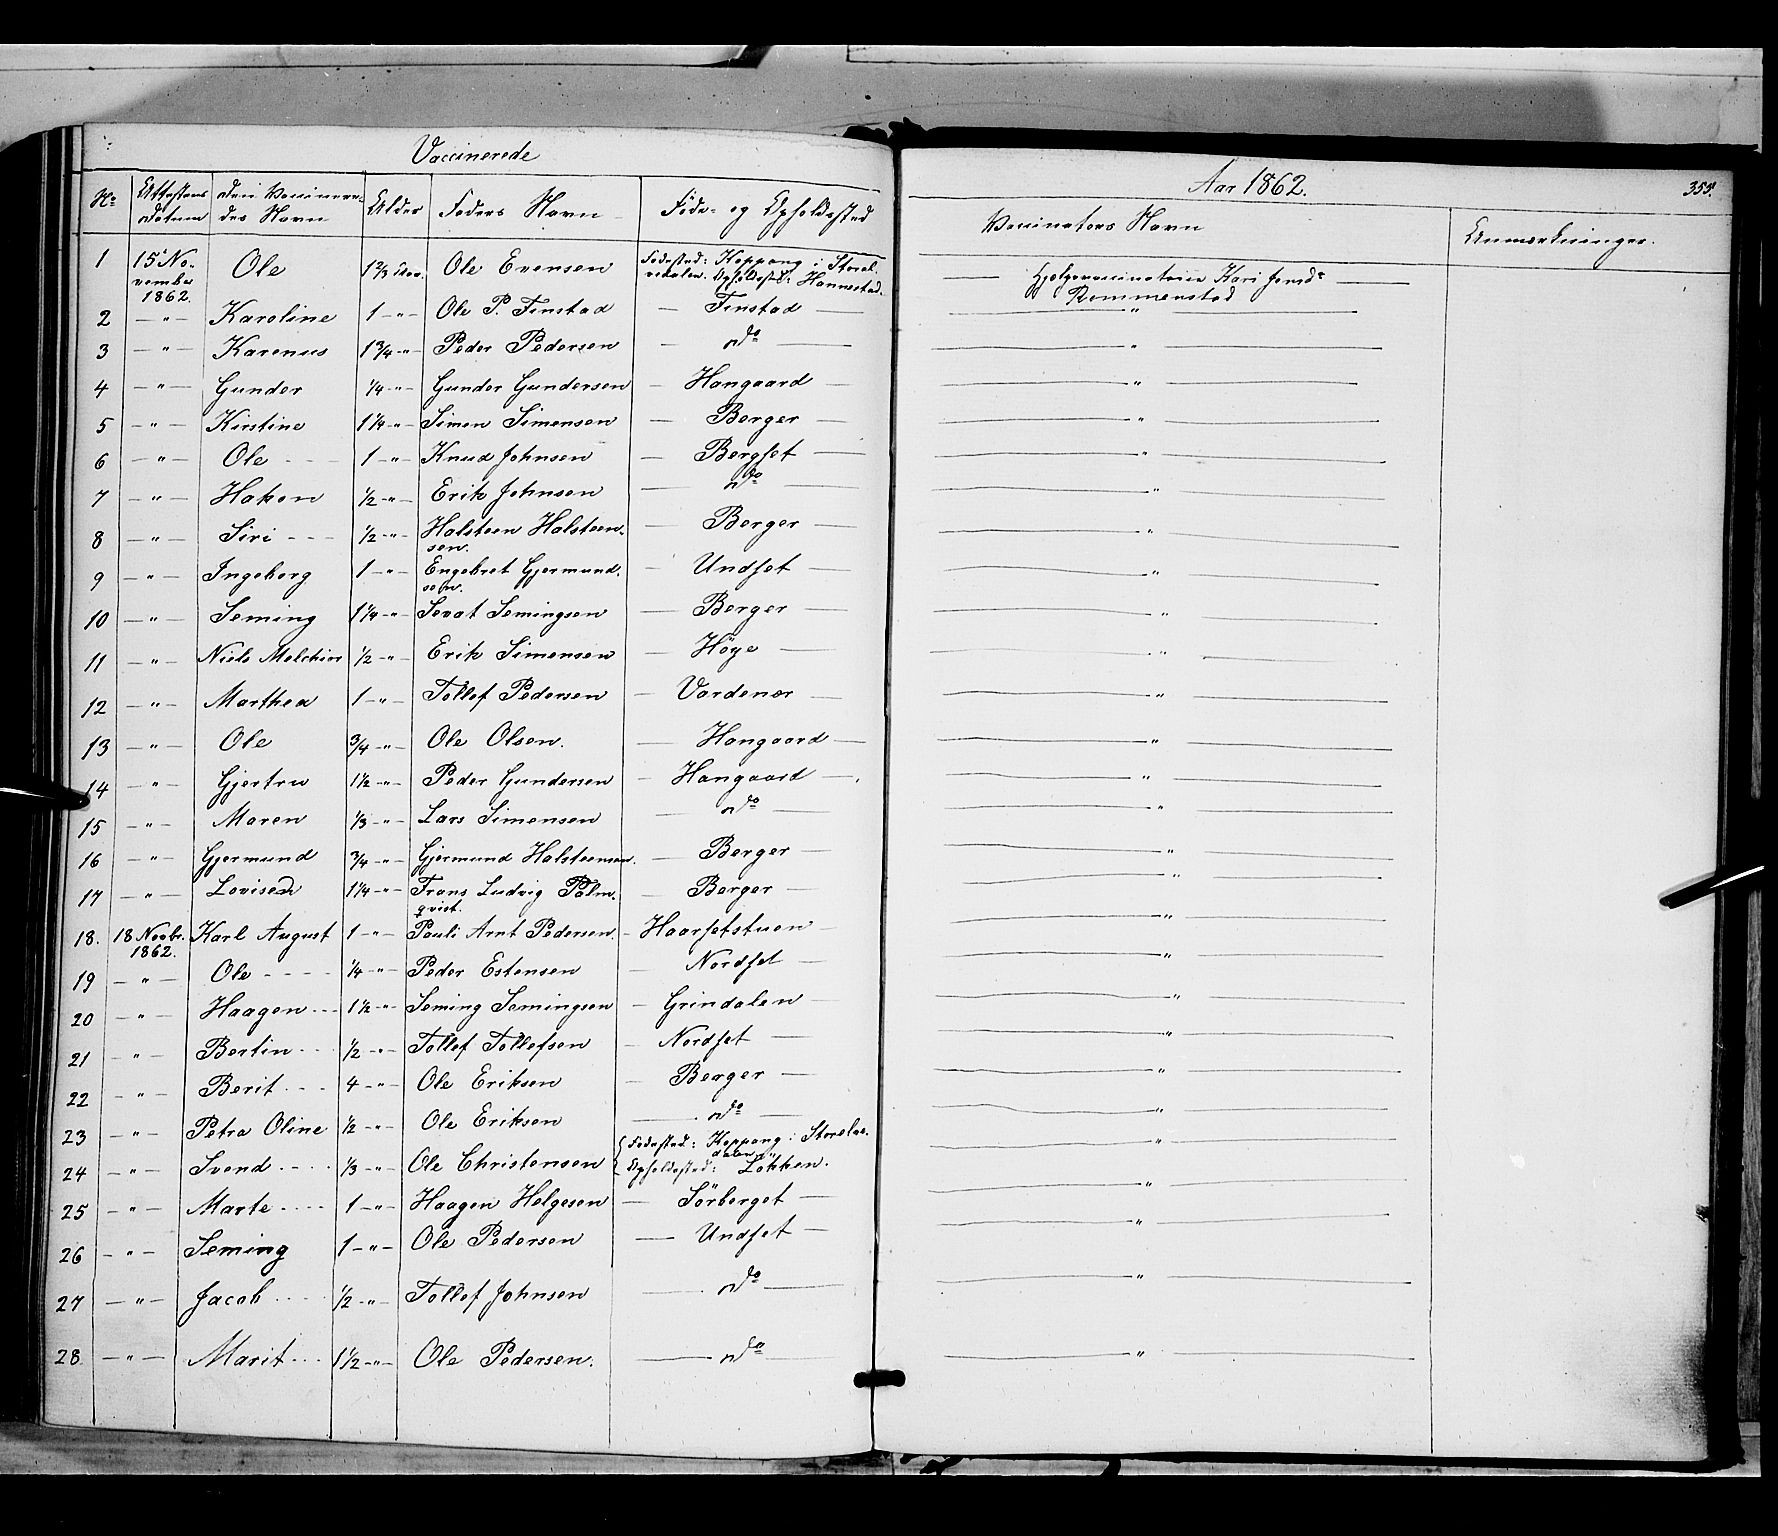 Vaccinerede
No Attestens Datum Den Vaccineredes Navn Alder Faders Navn Føde- og Opholdssted
1 15 November 1862. Ole 1 2/3 Aar. Ole Evensen Fødested: Koppang i Storelvedalen. Opholdssted: Hannestad.
2 — " — Karoline 1 — " — Ole P. Finstad — Finstad —
3 — " — Karenus 1 3/4 — " — Peder Pedersen — do —
4 — " — Gunder 1/4 — " — Gunder Gundersen — Hangaard —
5 — " — Kirstine 1 1/4 — " — Simen Simensen — Berger —
6 — " — Ole 1 — " — Knud Johnsen — Bergset —
7 — " — Hakon 1/2 — " — Erik Johnsen — do —
8 — " — Siri 1/2 — " — Halsteen Halsteensen. — Berger —
9 — " — Ingeborg 1 — " — Engebret Gjermundsen. — Undset —
10 — " — Seming 1 1/4 — " — Sevat Semingsen — Berger —
11 — " — Niels Melchior 1/2 — " — Erik Simensen — Höye —
12 — " — Marthea 1 — " — Tollef Pedersen — Vardenær —
13 — " — Ole 3/4 — " — Ole Olsen. — Hangaard —
14 — " — Gjertru 1 1/2 — " — Peder Gundersen — Hangaard —
15 — " — Maren 1/3 — " — Lars Simensen — do —
16 — " — Gjermund 3/4 — " — Gjermund Halsteensen. — Berger —
17 — " — Lovise 1 1/4 — " — Frans Ludvig Palmqvist. — Berger —
18. 18 Novbr. 1862. Karl August 1 — " — Pauli Arnt Pedersen. — Haarsetstuen —
19 — " — Ole 1/4 — " — Peder Estensen — Nordset —
20 — " — Haagen 1 1/2 — " — Seming Semingsen — Grindalen —
21 — " — Bertin 1/2 — " — Tollef Tollefsen — Nordset —
22 — " — Berit 4 — " — Ole Eriksen — Berger —
23 — " — Petra Oline 1/2 — " — Ole Eriksen — do —
24 — " — Svend 1/3 — " — Ole Christensen Fødested: Koppang i Storelvedalen Opholdssted: Løkken.
25 — " — Marte 1 — " — Haagen Helgesen — Sörberget —
26 — " — Seming 1 — " — Ole Pedersen — Undset —
27 — " — Jacob 1/2 — " — Tollef Johnsen — do —
28 — " — Marit 1 1/2 — " — Ole Pedersen. — do —
Aar 1862.
355.
Vaccinators Navn Anmærkninger.
— Hjelpevaccinatrice Kari Jonsdr —
Rommenstad
— " —
— " —
— " —
— " —
— " —
— " —
— " —
— " —
— " —
— " —
— " —
— " —
— " —
— " —
— " —
— " —
— " —
— " —
— " —
— " —
— " —
— " —
— " —
— " —
— " —
— " —
— " —